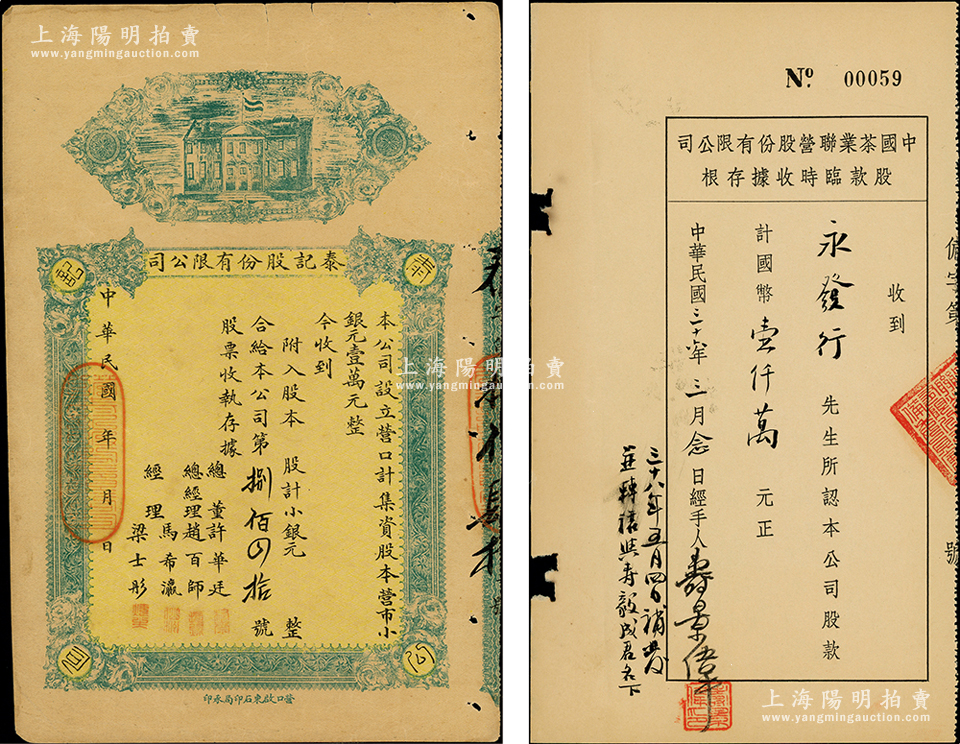 上海陽明拍賣
www.yangmingauction.com
泰記股份有限公司
本公司設立營口計集資股本營市小
銀元壹萬元整
今收到
附入股本 股計小銀元 整
合給本公司第捌佰四拾號
股票收執存據
總董許華廷
總經理趙百師
馬希瀛
經理
梁士彤
中華民國 年 月 日
營口啟東石印局承印
上海陽明拍賣
www.yangmingauction.com
上海陽明拍賣
www.yangmingauction.com
No. 00059
中國茶業聯營股份有限公司
股款臨時收據存根
收到
永發行 先生所認本公司股款
計國幣壹仟萬 元正
中華民國三十六年三月念日經手人壽景偉
三十八年五月四日補發
並轉振興壽毅成君名下
號
上海陽明拍賣
www.yangmingauction.com